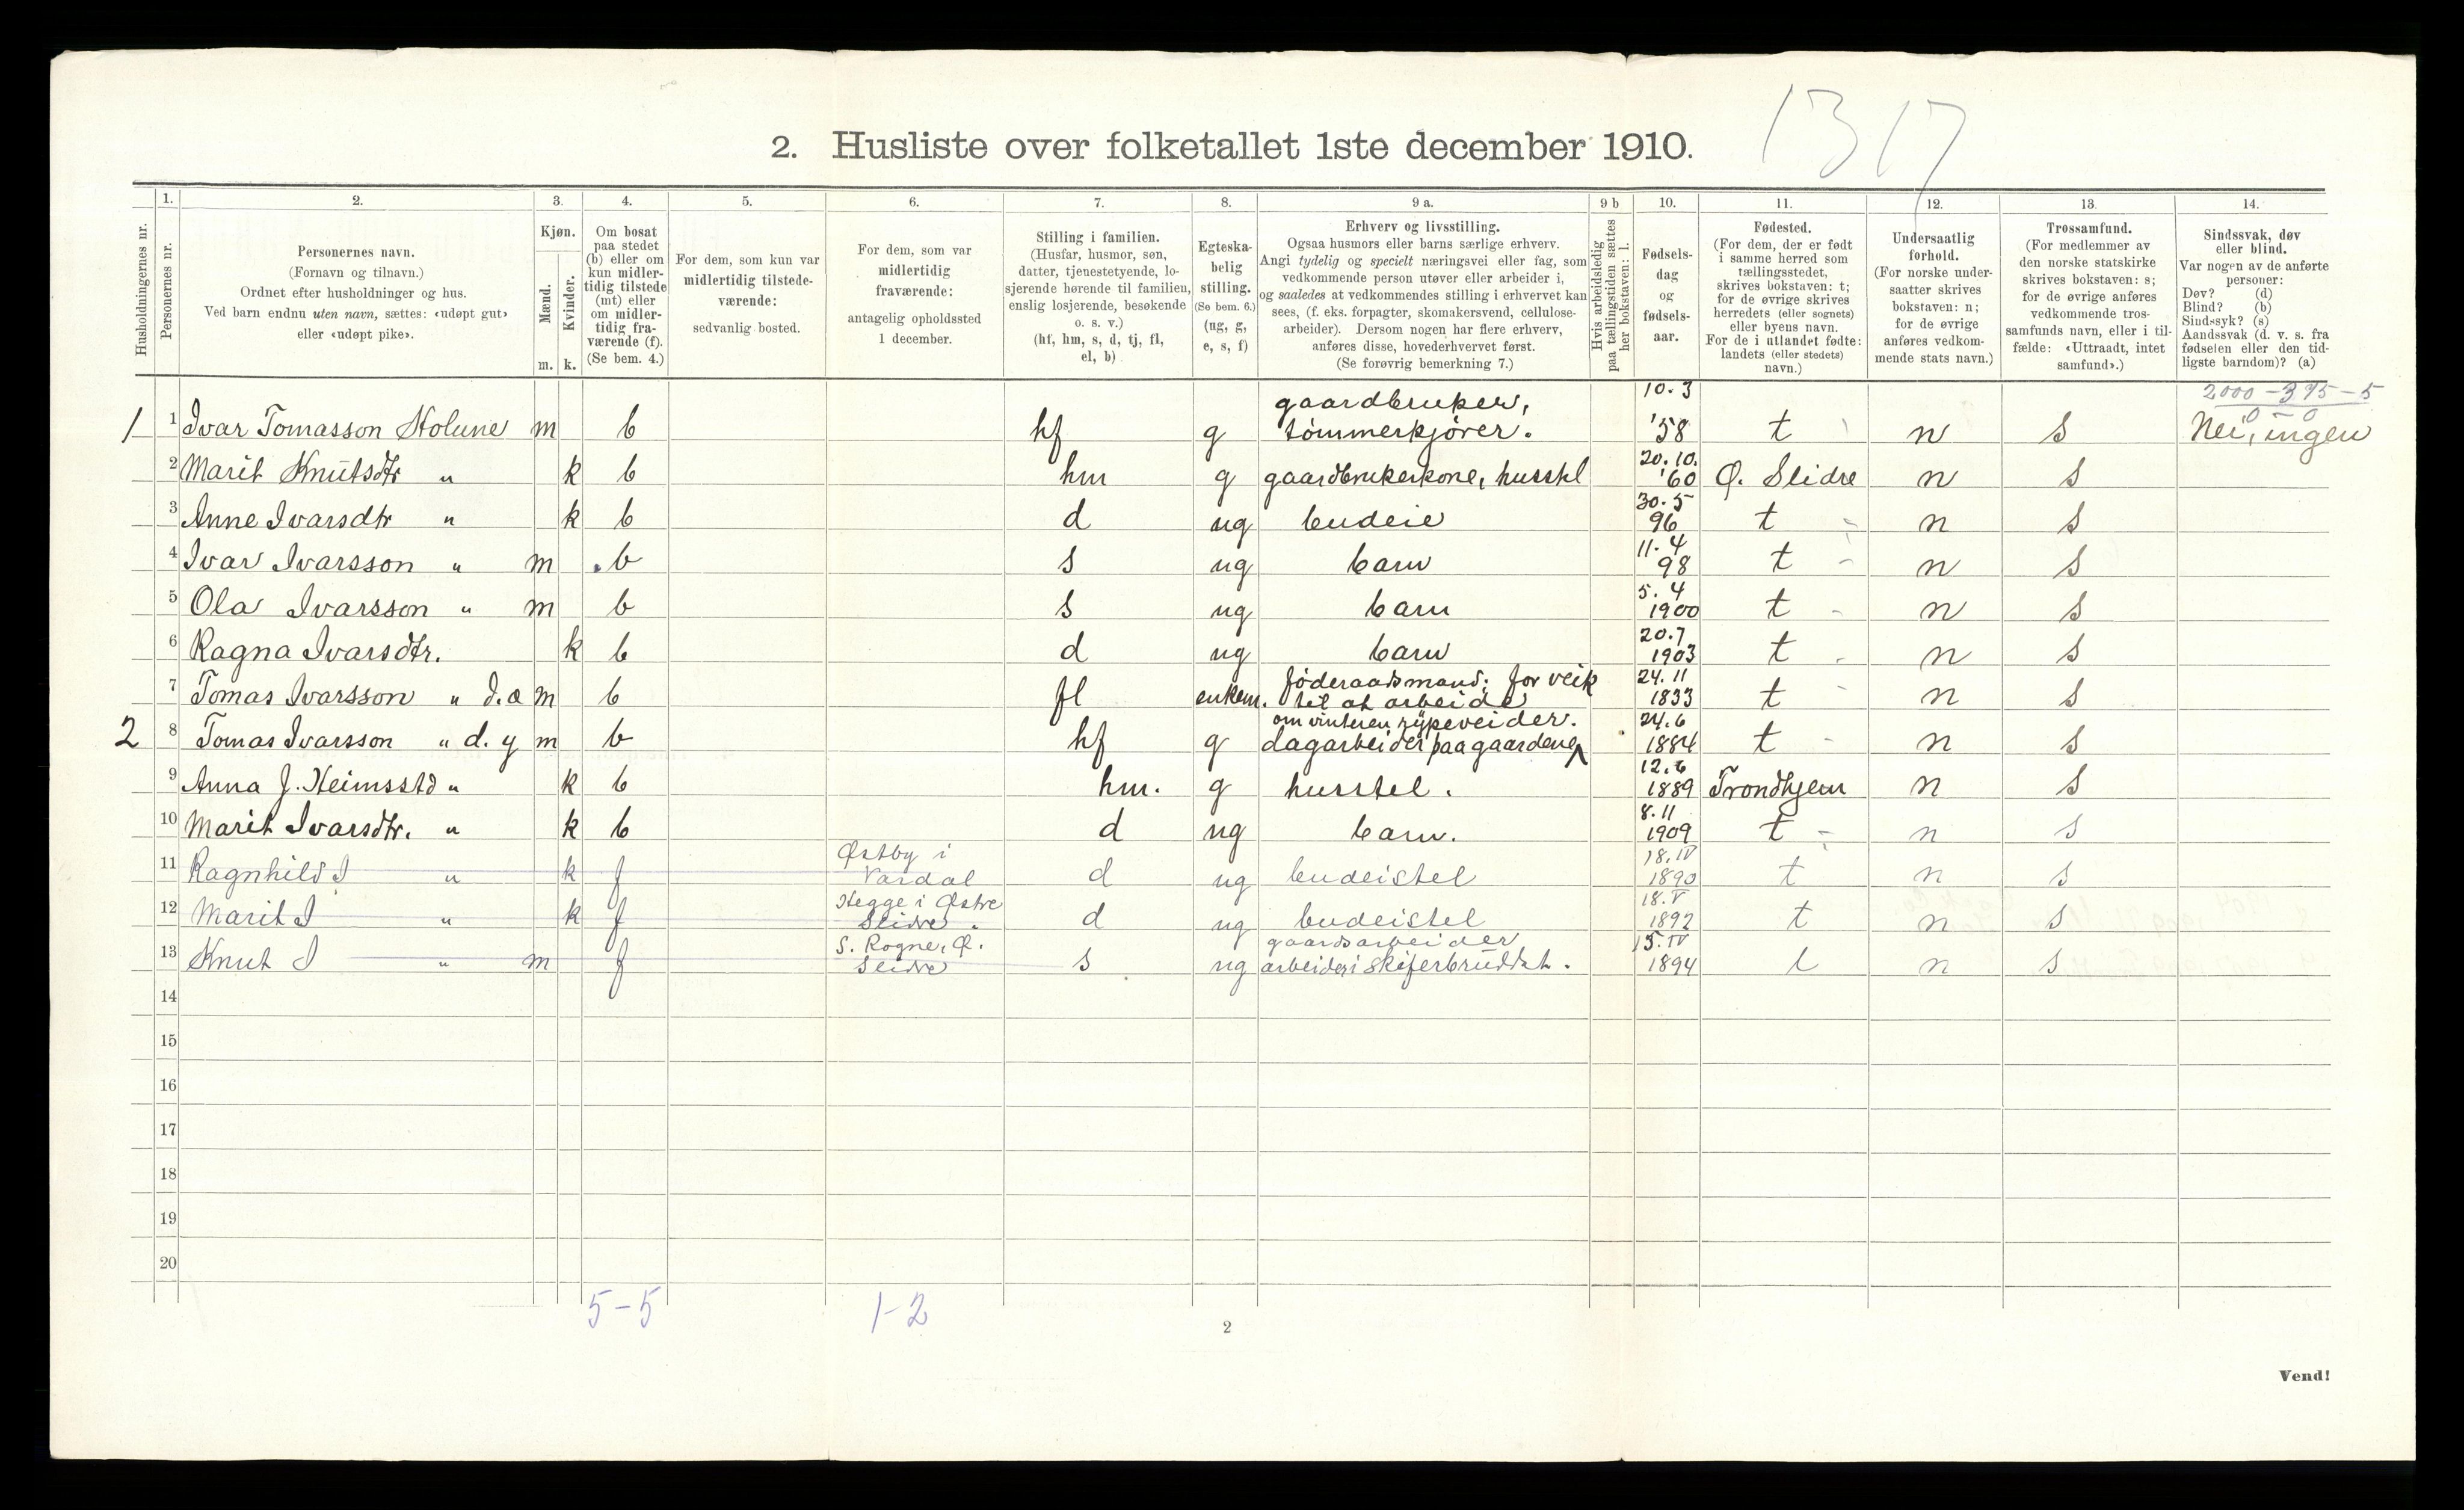 1317
2. Husliste over folketallet 1ste december 1910.
Husholdningernes nr.
1. Personernes nr.
2. Personernes navn.
(Fornavn og tilnavn.)
Ordnet efter husholdninger og hus.
Ved barn endnu uten navn, sættes: «udøpt gut»
eller «udøpt pike».
3. Kjøn.
Mænd. m.
Kvinder. k.
4. Om bosat
paa stedet
(b) eller om
kun midler-
tidig tilstede
(mt) eller
om midler-
tidig fra-
værende (f).
(Se bem. 4.)
5. For dem, som kun var
midlertidig tilstede-
værende:
sedvanlig bosted.
6. For dem, som var
midlertidig
fraværende:
antagelig opholdssted
1 december.
7. Stilling i familien.
(Husfar, husmor, søn,
datter, tjenestetyende, lo-
sjerende hørende til familien,
enslig losjerende, besøkende
o. s. v.)
(hf, hm, s, d, tj, fl,
el, b)
8. Egteska-
belig
stilling.
(Se bem. 6.)
(ug, g,
e, s, f)
9 a. Erhverv og livsstilling.
Ogsaa husmors eller barns særlige erhverv.
Angi tydelig og specielt næringsvei eller fag, som
vedkommende person utøver eller arbeider i,
og saaledes at vedkommendes stilling i erhvervet kan
sees, (f. eks. forpagter, skomakersvend, cellulose-
arbeider). Dersom nogen har flere erhverv,
anføres disse, hovederhvervet først.
(Se forøvrig bemerkning 7.)
9 b Hvis arbeidsledig
paa tællingstiden sættes
her bokstaven: l.
10. Fødsels-
dag
og
fødsels-
aar.
11. Fødested.
(For dem, der er født
i samme herred som
tællingsstedet,
skrives bokstaven: t;
for de øvrige skrives
herredets (eller sognets)
eller byens navn.
For de i utlandet fødte:
landets (eller stedets)
navn.)
12. Undersaatlig
forhold.
(For norske under-
saatter skrives
bokstaven: n;
for de øvrige
anføres vedkom-
mende stats navn.)
13. Trossamfund.
(For medlemmer av
den norske statskirke
skrives bokstaven: s;
for de øvrige anføres
vedkommende tros-
samfunds navn, eller i til-
fælde: «Uttraadt, intet
samfund».)
14. Sindssvak, døv
eller blind.
Var nogen av de anførte
personer:
Døv? (d)
Blind? (b)
Sindssyk? (s)
Aandssvak (d. v. s. fra
fødselen eller den tid-
ligste barndom)? (a)
2000-375-5
0-0
1 1 Ivar Tomasson Holune m b hf g gaardbruker, tømmerkjører. 10.3 '58 t n s Nei, ingen
2 Marit Knutsdtr " k b hm g gaardbrukerkone, husstel 20.10. '60 Ø. Slidre n s
3 Anne Ivarsdtr " k b d ug budeie 30.5 96 t n s
4 Ivar Ivarsson " m b s ug barn 11.4 98 t n s
5 Ola Ivarsson " m b s ug barn 5.4 1900 t n s
6 Ragna Ivarsdtr. k b d ug barn 20.7 1903 t n s
7 Tomas Ivarsson " d.æ m b fl enkem. føderaadsmand; for veik til at arbeide 24.11 1833 t n s
2 8 Tomas Ivarsson " d. y m b hf g om vinteren rypeveider. dagarbeider paa gaardene 24.6 1884 t n s
9 Anna J. Heimsstd " k b hm. g husstel. 12.6 1889 Trondhjem n s
10 Marit Ivarsdtr. " k b d ug barn. 8.11 1909 t n s
11 Ragnhild I " k f Østby i Vardal d ug budeistel 18.IV 1890 t n s
12 Marit I " k f Hegge i Østre Slidre. d ug budeistel 18.V 1892 t n s
13 Knut I " m f S. Rogne, Ø. Slidre s ug gaardsarbeider arbeider i skiferbruddet. 15.IV 1894 t n s
14
15
16
17
18
19
20
5-5 1-2
2
Vend!